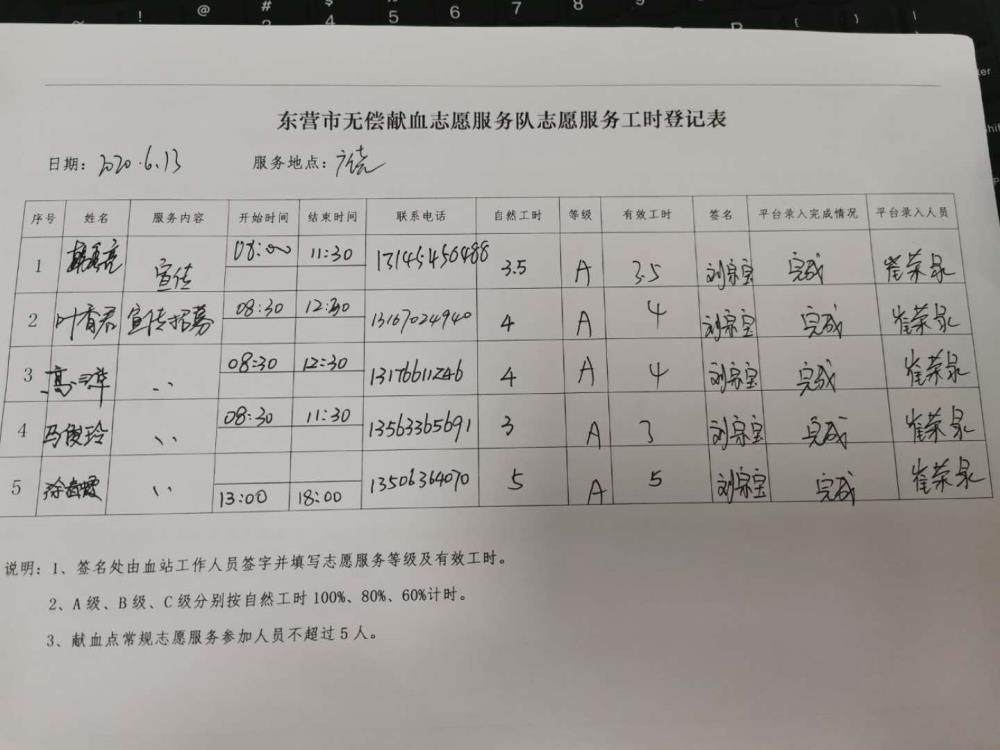 东营市无偿献血志愿服务队志愿服务工时登记表
日期：2020.6.13 服务地点：广饶
序号 姓名 服务内容 开始时间 结束时间 联系电话 自然工时 等级 有效工时 签名 平台录入完成情况 平台录入人员
1 宣传 08:00 11:30 13145456488 3.5 A 3.5 刘宗宝 完成 崔荣泉
2 叶香君 宣传招募 08:30 12:30 13167024940 4 A 4 刘宗宝 完成 崔荣泉
3 高洋 、、 08:30 12:30 13176611246 4 A 4 刘宗宝 完成 崔荣泉
4 马俊玲 、、 08:30 11:30 13563365691 3 A 3 刘宗宝 完成 崔荣泉
5 、、 13:00 18:00 13506364070 5 A 5 刘宗宝 完成 崔荣泉
说明：1、签名处由血站工作人员签字并填写志愿服务等级及有效工时。
2、A 级、B 级、C 级分别按自然工时 100%、80%、60%计时。
3、献血点常规志愿服务参加人员不超过 5 人。